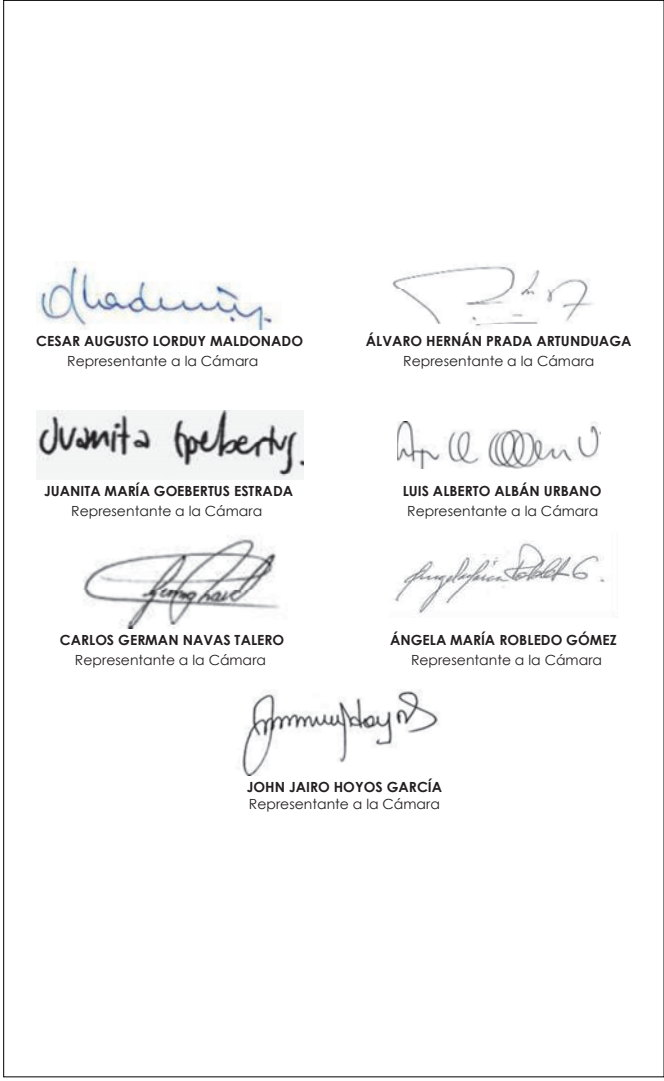 CESAR AUGUSTO LORDUY MALDONADO
Representante a la Cámara
ÁLVARO HERNÁN PRADA ARTUNDUAGA
Representante a la Cámara
Juanita Goebertus.
JUANITA MARÍA GOEBERTUS ESTRADA
Representante a la Cámara
LUIS ALBERTO ALBÁN URBANO
Representante a la Cámara
CARLOS GERMAN NAVAS TALERO
Representante a la Cámara
Angela María Robledo G.
ÁNGELA MARÍA ROBLEDO GÓMEZ
Representante a la Cámara
JOHN JAIRO HOYOS GARCÍA
Representante a la Cámara